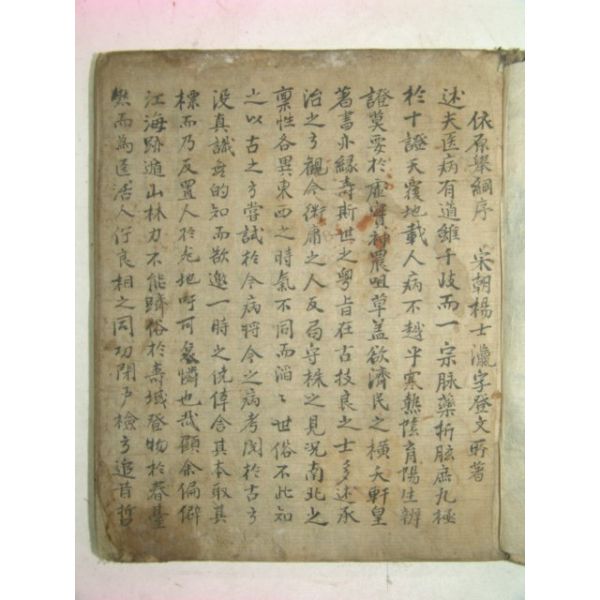 依原舉綱序 宋朝楊士瀛字登文所著
述夫医病有道雖千歧而一宗脉藥折肱庶九極
於十證天覆地載人病不越乎寒熱陰育陽生辨
證莫要於虛實神農咀草蓋欲濟民之橫夭軒皇
著書亦緣壽斯世之粤旨在古技良之士多述承
治之方觀今術庸之人反局守株之見況南北之
稟性各異東西之時氣不同而滔〻世俗不此知
之以古之方嘗試於今病將今之病考閱於古方
没真識無的知而欲邀一時之僥倖舍其本取其
標而乃反置人於危地吁可哀憐也哉顧余偏僻
江海跡遁山林力不能躋俗於壽域登物於春臺
然而為医活人行良相之同功閉户檢方追昔哲